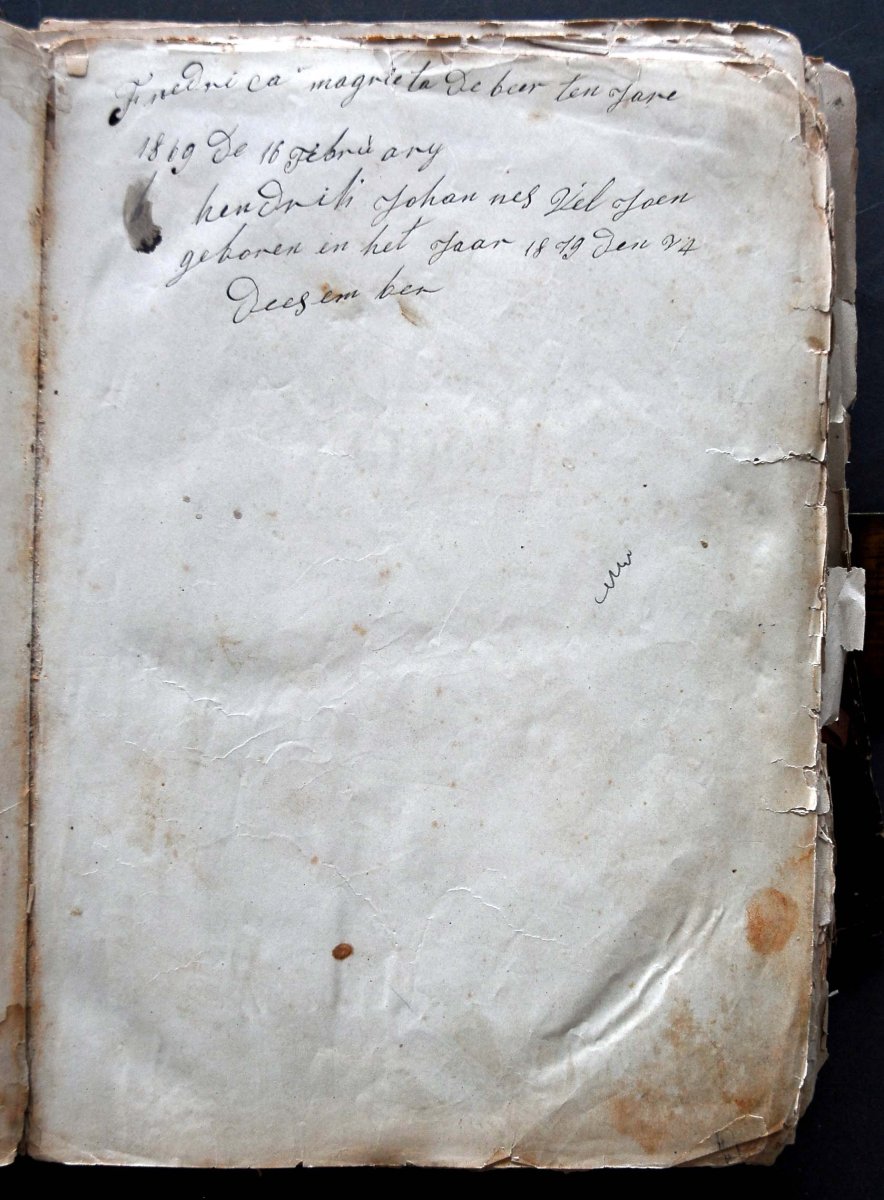 Fredrica magrieta De beer ten Jare
1869 De 16 Febriuary
hendrik Johannes Vel Joen
geboren en het Jaar 1879 den 24
Deesember